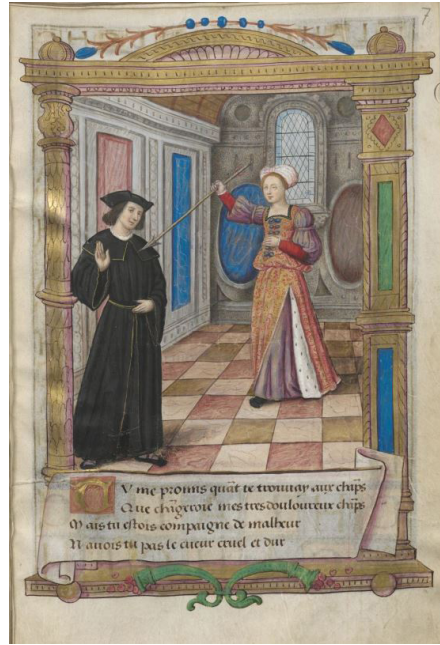 7
Tu me promis quāt te trouvay aux chāps
Que chāgeroie mes tres douloureux chāps
Mais tu estois compaigne de malheur
Navois tu pas le cueur cruel et dur